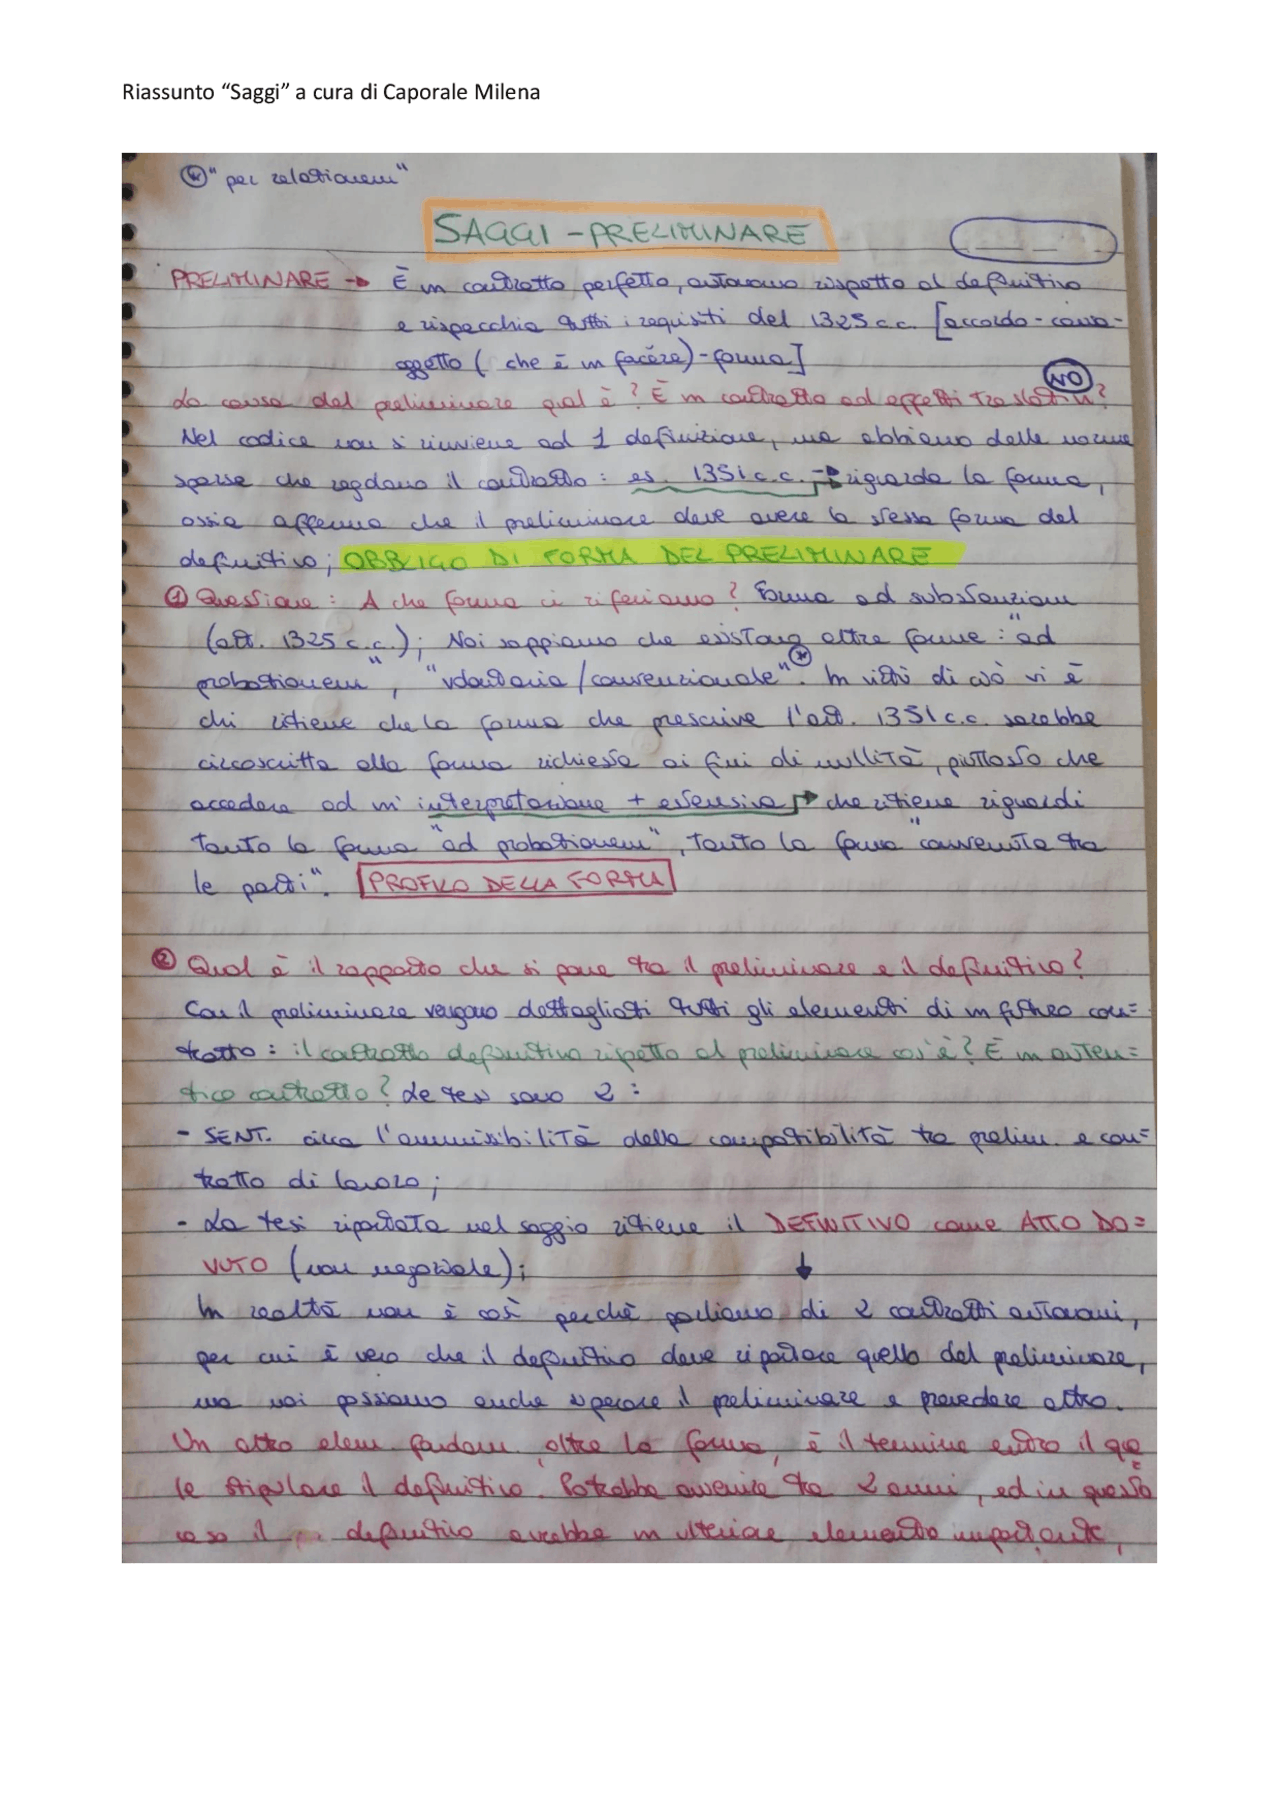 Riassunto “Saggi” a cura di Caporale Milena
* "per relationem"
SAGGI - PRELIMINARE
PRELIMINARE → È un contratto perfetto, autonomo rispetto al definitivo
e rispecchia tutti i requisiti del 1325 c.c. [accordo - causa -
oggetto ( che è un facere) - forma]
NO
La causa del preliminare qual è? È un contratto ad effetti traslativi?
Nel codice non si rinviene ad 1 definizione, ma abbiamo delle norme
sparse che regolano il contratto : es. 1351 c.c. → riguarda la forma,
ossia afferma che il preliminare deve avere la stessa forma del
definitivo; OBBLIGO DI FORMA DEL PRELIMINARE
① Questione : A che forma ci riferiamo? Forma ad substantiam
(art. 1325 c.c.); Noi sappiamo che esistono altre forme : "ad
probationem", "volontaria/convenzionale"*. In virtù di ciò vi è
chi ritiene che la forma che prescrive l'art. 1351 c.c. sarebbe
circoscritta alla forma richiesta ai fini di nullità, piuttosto che
accedere ad un'interpretazione + estensiva → che ritiene riguardi
tanto la forma "ad probationem", tanto la forma "convenuta tra
le parti". PROFILO DELLA FORMA
② Qual è il rapporto che si pone tra il preliminare e il definitivo?
Con il preliminare vengono dettagliati tutti gli elementi di un futuro con=
tratto : il contratto definitivo rispetto al preliminare cos'è? È un auten=
tico contratto? Le tesi sono 2 :
- SENT. circa l'ammissibilità della compatibilità tra prelim. e con=
tratto di lavoro ;
- La tesi riportata nel saggio ritiene il DEFINITIVO come ATTO DO=
VUTO (non negoziale) ; ↓
In realtà non è così perchè parliamo di 2 contratti autonomi,
per cui è vero che il definitivo deve riportare quello del preliminare,
ma noi possiamo anche superare il preliminare e prevedere altro.
Un altro elem. fondam. oltre la forma, è il termine entro il qua
le stipulare il definitivo. Potrebbe avvenire tra 2 anni, ed in questo
caso il definitivo avrebbe un ulteriore elemento importante,